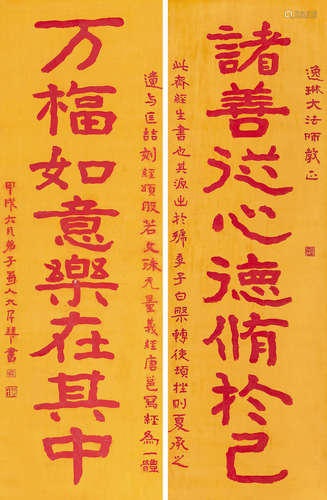 逸琳大法師教正
諸善從心德脩於己
此齊經生書也其源出於虢季子白槃轉使頓挫則夏承之
遺与匡喆刻經頌般若文殊无量義經唐邕寫經為一體
万福如意樂在其中
甲戌六月弟子書